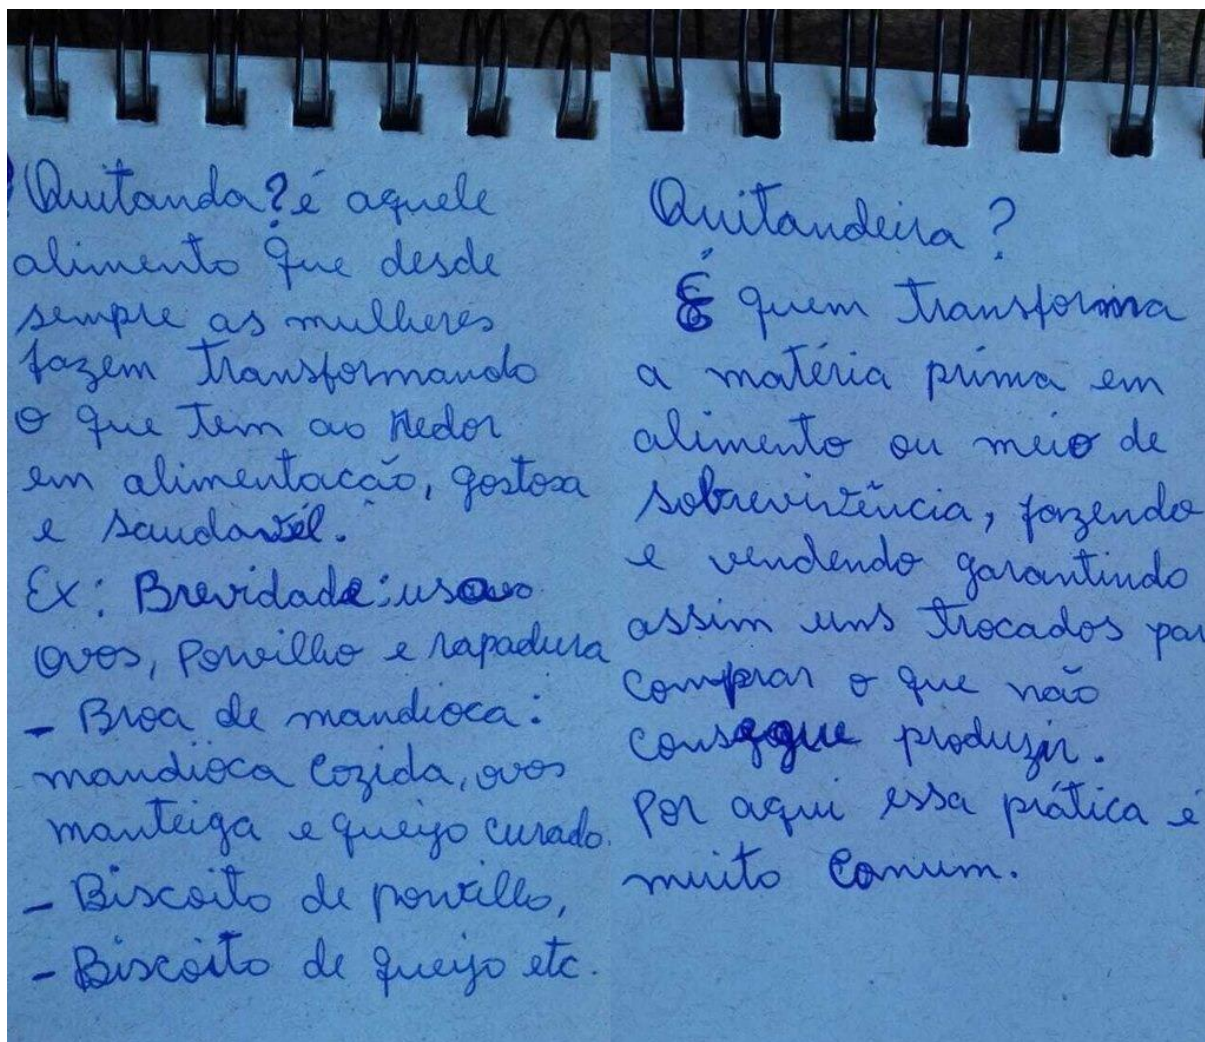 Quitanda? é aquele
alimento que desde
sempre as mulheres
fazem transformando
o que tem ao redor
em alimentacão, gostosa
e saudavél.
Ex: Brevidade: usa
ovos, polvilho e rapadura
- Broa de mandioca:
mandioca cozida, ovos
manteiga e queijo curado.
- Biscoito de povillo,
- Biscoito de queijo etc.
Quitandeira?
É quem transforma
a matéria prima em
alimento ou meio de
sobrevivência, fazendo
e vendendo garantindo
assim uns trocados par
comprar o que não
consegue produzir.
Por aqui essa prática é
muito comum.